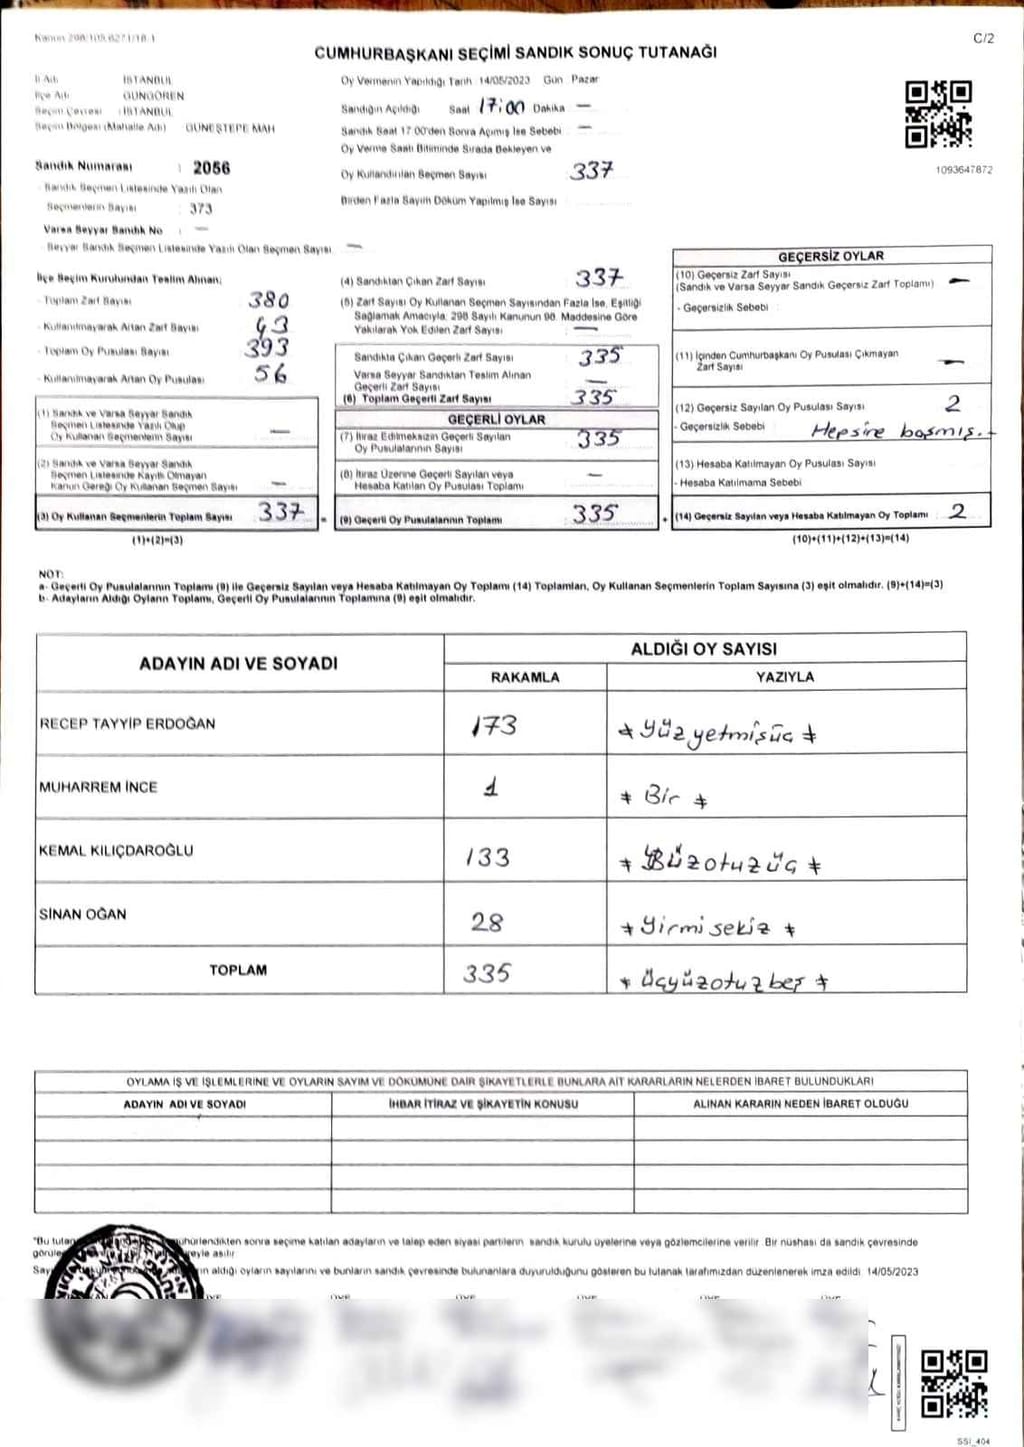 Kanun 298/105,6271/18-1
C/2
CUMHURBAŞKANI SEÇİMİ SANDIK SONUÇ TUTANAĞI
İl Adı : İSTANBUL
İlçe Adı : GÜNGÖREN
Seçim Çevresi : İSTANBUL
Seçim Bölgesi (Mahalle Adı) : GÜNEŞTEPE MAH
Sandık Numarası : 2056
- Sandık Seçmen Listesinde Yazılı Olan
Seçmenlerin Sayısı : 373
Varsa Seyyar Sandık No : —
- Seyyar Sandık Seçmen Listesinde Yazılı Olan Seçmen Sayısı —
Oy Vermenin Yapıldığı Tarih 14/05/2023 Gün Pazar
Sandığın Açıldığı Saat 17:00 Dakika —
Sandık Saat 17:00'den Sonra Açılmış İse Sebebi —
Oy Verme Saati Bitiminde Sırada Bekleyen ve
Oy Kullandırılan Seçmen Sayısı 337
Birden Fazla Sayım Döküm Yapılmış İse Sayısı
1093647872
İlçe Seçim Kurulundan Teslim Alınan;
- Toplam Zarf Sayısı 380
- Kullanılmayarak Artan Zarf Sayısı 43
- Toplam Oy Pusulası Sayısı 393
- Kullanılmayarak Artan Oy Pusulası 56
(1) Sandık ve Varsa Seyyar Sandık
Seçmen Listesinde Yazılı Olup
Oy Kullanan Seçmenlerin Sayısı —
(2) Sandık ve Varsa Seyyar Sandık
Seçmen Listesinde Kayıtlı Olmayan
Kanun Gereği Oy Kullanan Seçmen Sayısı —
(3) Oy Kullanan Seçmenlerin Toplam Sayısı 337 =
(1)+(2)=(3)
(4) Sandıktan Çıkan Zarf Sayısı 337
(5) Zarf Sayısı Oy Kullanan Seçmen Sayısından Fazla İse, Eşitliği
Sağlamak Amacıyla; 298 Sayılı Kanunun 98. Maddesine Göre
Yakılarak Yok Edilen Zarf Sayısı —
Sandıkta Çıkan Geçerli Zarf Sayısı 335
Varsa Seyyar Sandıktan Teslim Alınan
Geçerli Zarf Sayısı —
(6) Toplam Geçerli Zarf Sayısı 335
GEÇERLİ OYLAR
(7) İtiraz Edilmeksizin Geçerli Sayılan
Oy Pusulasının Sayısı 335
(8) İtiraz Üzerine Geçerli Sayılan veya
Hesaba Katılan Oy Pusulası Toplamı —
(9) Geçerli Oy Pusulalarının Toplamı 335 +
GEÇERSİZ OYLAR
(10) Geçersiz Zarf Sayısı
(Sandık ve Varsa Seyyar Sandık Geçersiz Zarf Toplamı) —
- Geçersizlik Sebebi :
(11) İçinden Cumhurbaşkanı Oy Pusulası Çıkmayan
Zarf Sayısı —
(12) Geçersiz Sayılan Oy Pusulası Sayısı 2
- Geçersizlik Sebebi : Hepsine basmış.
(13) Hesaba Katılmayan Oy Pusulası Sayısı
- Hesaba Katılmama Sebebi
(14) Geçersiz Sayılan veya Hesaba Katılmayan Oy Toplamı 2
(10)+(11)+(12)+(13)=(14)
NOT:
a- Geçerli Oy Pusulalarının Toplamı (9) ile Geçersiz Sayılan veya Hesaba Katılmayan Oy Toplamı (14) Toplamları, Oy Kullanan Seçmenlerin Toplam Sayısına (3) eşit olmalıdır. (9)+(14)=(3)
b- Adayların Aldığı Oyların Toplamı, Geçerli Oy Pusulalarının Toplamına (9) eşit olmalıdır.
ADAYIN ADI VE SOYADI
ALDIĞI OY SAYISI
RAKAMLA YAZIYLA
RECEP TAYYİP ERDOĞAN 173 * Yüzyetmişüç *
MUHARREM İNCE 1 * Bir *
KEMAL KILIÇDAROĞLU 133 * Yüzotuzüç *
SİNAN OĞAN 28 * Yirmisekiz *
TOPLAM 335 * Üçyüzotuzbeş *
OYLAMA İŞ VE İŞLEMLERİNE VE OYLARIN SAYIM VE DÖKÜMÜNE DAİR ŞİKAYETLERLE BUNLARA AİT KARARLARIN NELERDEN İBARET BULUNDUKLARI
ADAYIN ADI VE SOYADI İHBAR İTİRAZ VE ŞİKAYETİN KONUSU ALINAN KARARIN NEDEN İBARET OLDUĞU
"Bu tuta mühürlendikten sonra seçime katılan adayların ve talep eden siyasi partilerin sandık kurulu üyelerine veya gözlemcilerine verilir. Bir nüshası da sandık çevresinde
görüle asılır
Say ın aldığı oyların sayılarını ve bunların sandık çevresinde bulunanlara duyurulduğunu gösteren bu tutanak tarafımızdan düzenlenerek imza edildi 14/05/2023
SSİ_404